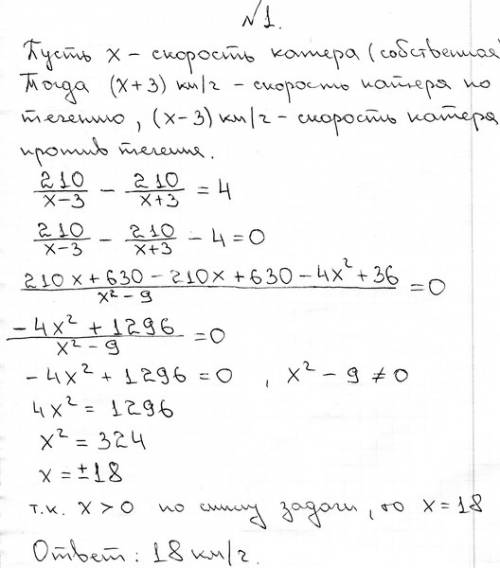 №1.
Пусть x – скорость катера (собственная)
Тогда (x+3) км/г – скорость катера по
течению, (x-3) км/г – скорость катера
против течения.
210/(x-3) - 210/(x+3) = 4
210/(x-3) - 210/(x+3) - 4 = 0
(210x + 630 - 210x + 630 - 4x² + 36)/(x² - 9) = 0
(-4x² + 1296)/(x² - 9) = 0
-4x² + 1296 = 0 , x² - 9 ≠ 0
4x² = 1296
x² = 324
x = ±18
т.к. x > 0 по смыслу задачи, то x = 18
Ответ: 18 км/г.